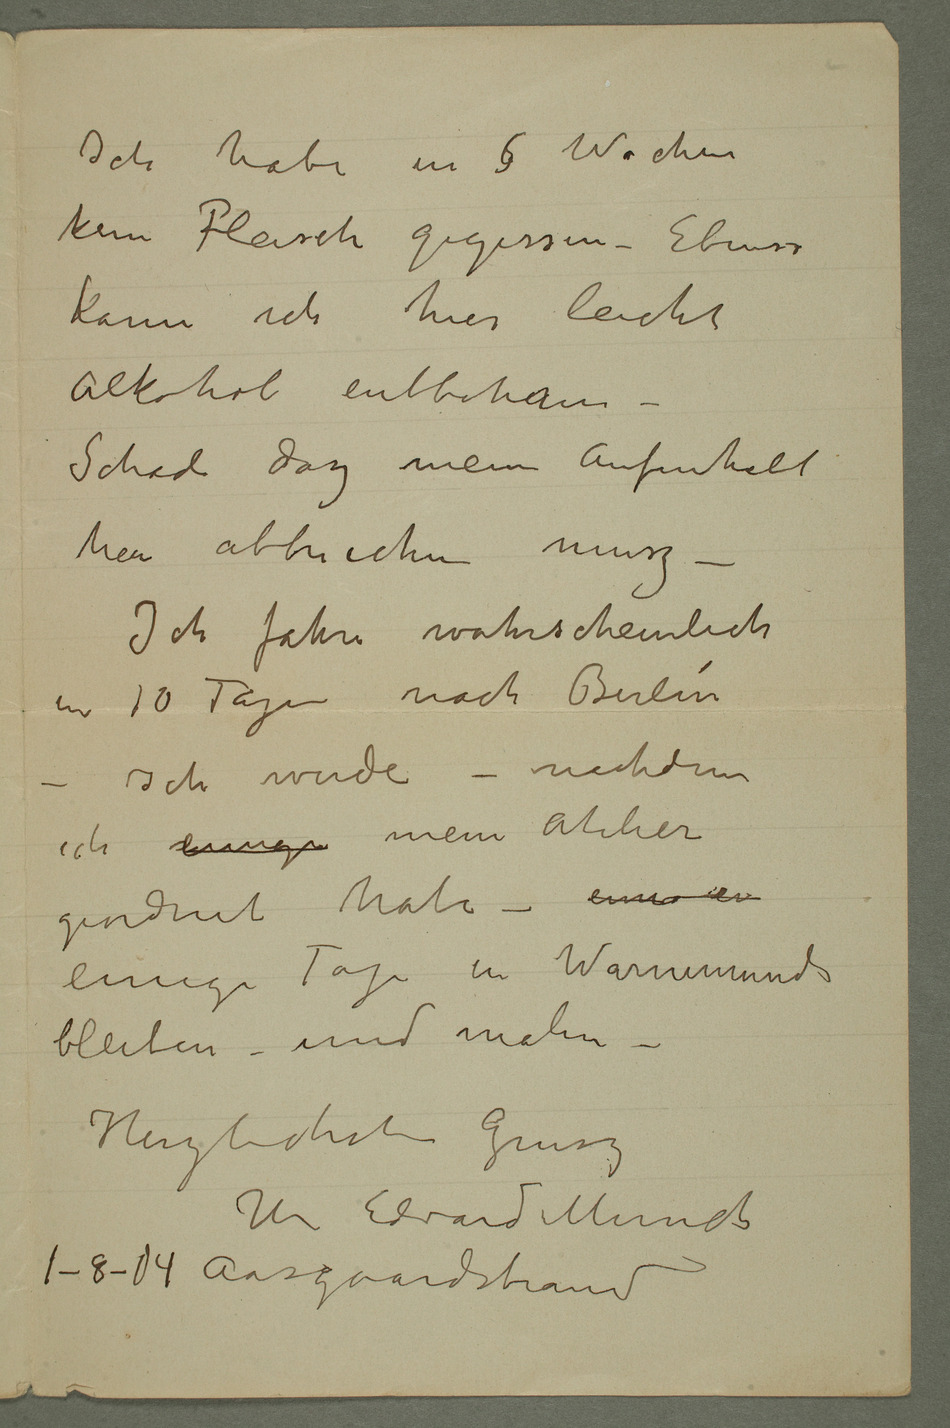 Ich habe in 6 Wochen
kein Fleisch gegessen – Ebenso
kann ich hier leicht
Alkohol entbehren –
Schade dasz mein Aufenthalt
hier abbrechen musz –
Ich fahre wahrscheinlich
in 10 Tagen nach Berlin
– Ich werde – nachdem
ich einige mein Atelier
geordnet habe –
einige Tage in Warnemünde
bleiben – und malen –
Herzlichsten Grusz
Ihr Edvard Munch
1–8–04 Aasgaardstrand